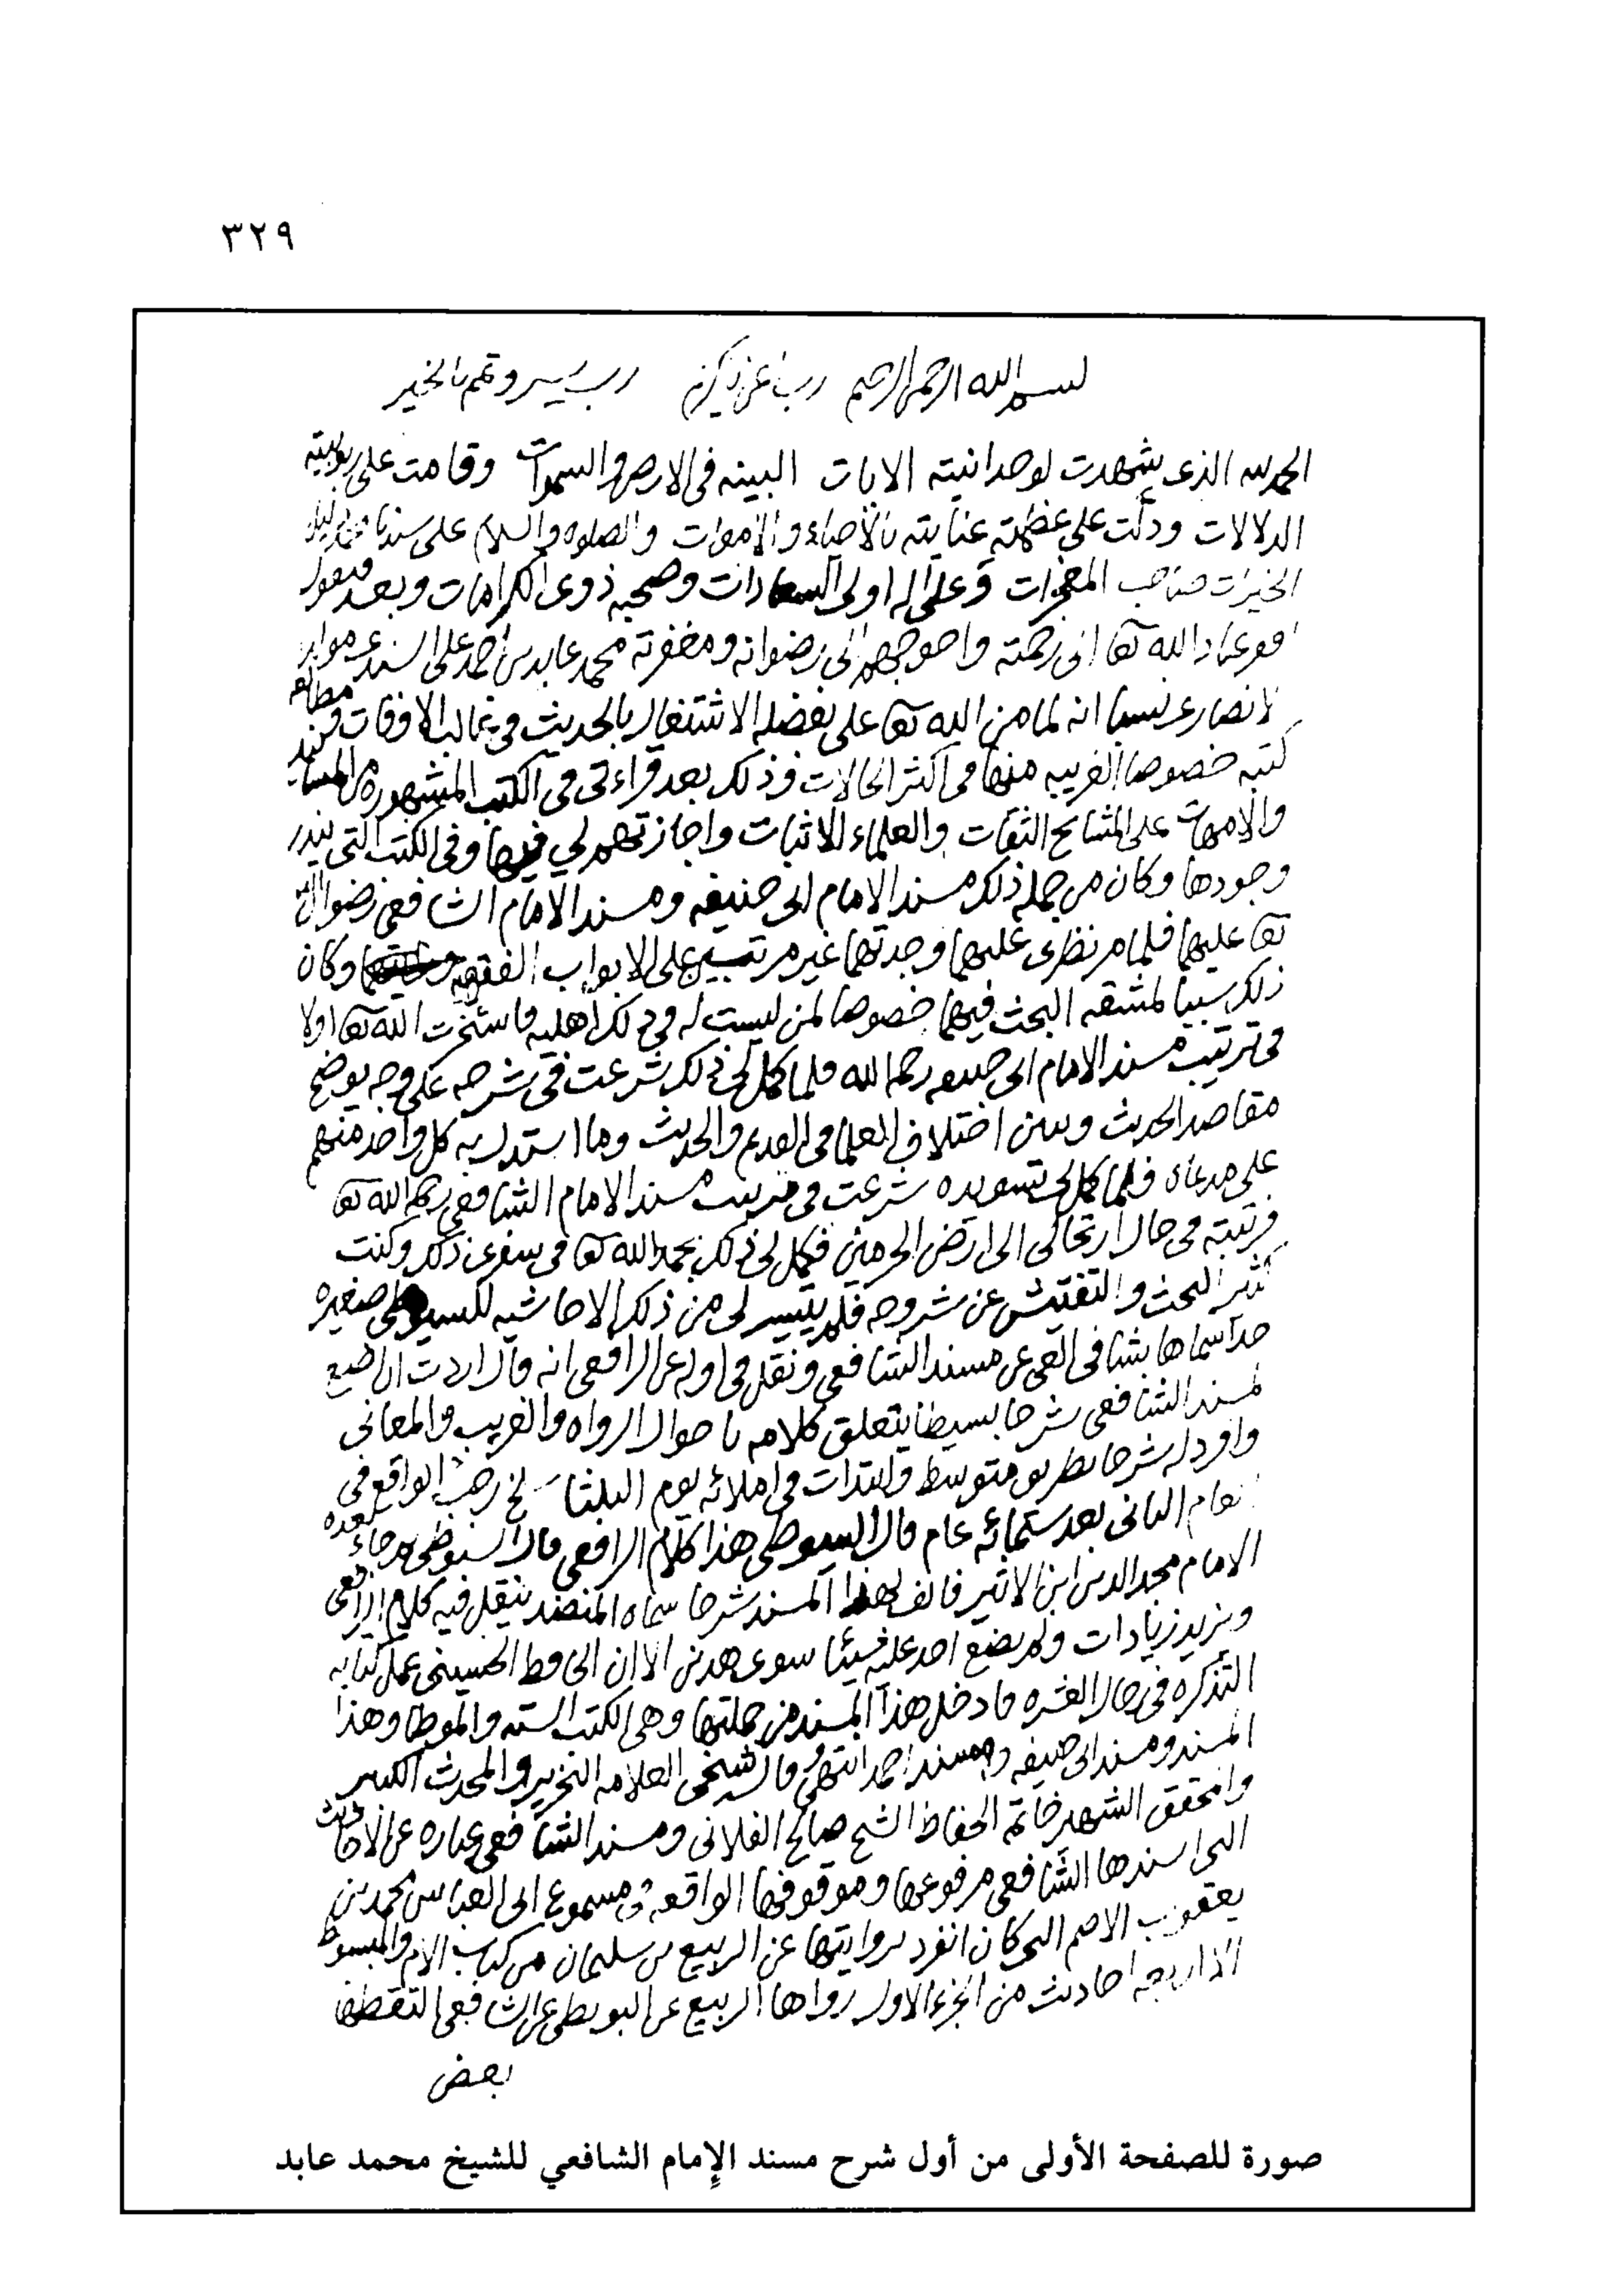 ٣٢٩
بسم الله الرحمن الرحيم رب اعن يا كريم رب يسر وتمم بالخير
الحمد لله الذى شهدت لوحدانيته الايات البينه فى الارض والسموات وقامت على ربوبيته
الدلالات ودلت على عظمته عنايته بالأحياء والاموات والصلوه والسلام على سيدنا محمد
الخيرات صاحب المعجزات وعلى اله اولى السعادات وصحبه ذوى الكرامات وبعد فيقول
افقر عباد الله تعا الى رحمته واحوجهم الى رضوانه ومغفرته محمد عابد بن احمد على السندى
الانصارى نسبا انه لما من الله تعا على بفضله الاشتغال بالحديث فى غالب الاوقات مطالعه
كتبه خصوصا الغريبه منها فى اكثر الحالات وذلك بعد قراءتى فى الكتب المشهوره من المسانيد
والامهات على المشايخ الثقات والعلماء الاثبات واجازتهم لي فيها وفى الكتب التى يندر
وجودها وكان من جمله ذلك مسند الامام ابى حنيفه ومسند الامام الشافعى رضوان الله
تعا عليهما فلما مر نظرى عليهما وجدتهما غير مرتبين على الابواب الفقهيه وكان
ذلك سببا لمشقه البحث فيهما خصوصا لمن ليست له فى ذلك اهليه فاستخرت الله تعا اولا
فى ترتيب مسند الامام ابى حنيفه رحمه الله فلما كمل لى ذلك شرعت فى شرحه على وجه يوضح
مقاصد الحديث ويبين اختلاف العلما فى القديم والحديث وما استدل به كل واحد منهم
على مدعاه فلما كمل لى تسويده شرعت فى ترتيب مسند الامام الشافعى رحمه الله تعا
فرتبته فى حال ارتحالى الى ارض الحرمين فكمل لى ذلك بحمد الله تعا فى سفرى ذلك وكنت
كثير البحث والتفتيش عن شروحه فلم يتيسر لى من ذلك الا حاشيه للسيوطى صغيره
جدا سماها بشافى العى عن مسند الشافعى ونقل فى اوله عن الرافعى انه قال اردت ان اضع
لمسند الشافعى شرحا بسيطا يتعلق كلامه باحوال الرواه والغريب والمعانى
وافرد له شرحا بطريق متوسط وابتدات فى املائه يوم الثلثا رجب الواقع فى
العام الثانى بعد ستمائه عام قال السيوطى هذا كلام الرافعى قال السيوطى ثم جاء بعده
الامام مجد الدين ابن الاثير فالف لهذا المسند شرحا سماه المنضد ينقل فيه كلام الرافعى
ويزيد زيادات ولم يضع احد عليه شيئا سوى هذين الا ان الحافظ الحسينى عمل كتابه
التذكره فى رجال العشره فادخل هذا المسند من جملتها وهى الكتب السته والموطا وهذا
المسند ومسند ابى حنيفه ومسند احمد انتهى وقال شيخى العلامه النحرير والمحدث الكبير
والمحقق الشهير خاتمة الحفاظ الشيخ صالح الفلانى ومسند الشافعى عباره عن الاحاديث
التى اسندها الشافعى مرفوعها وموقوفها الواقعه فى مسموع ابى العباس محمد بن
يعقوب الاصم التى كان انفرد بروايتها عن الربيع بن سليمان من كتاب الام والمبسوط
الا اربعه احاديث من الجزء الاول رواها الربيع عن البويطى عن الشافعى التقطها
بعض
صورة للصفحة الأولى من أول شرح مسند الإمام الشافعي للشيخ محمد عابد